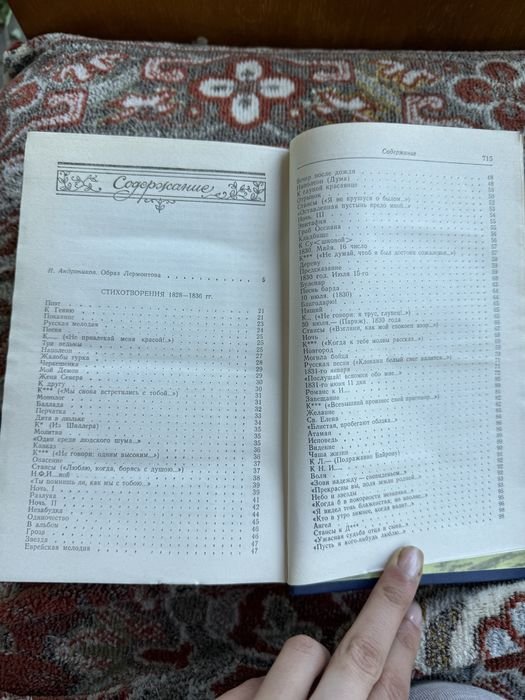 Содержание
И. Андроников. Образ Лермонтова 5
СТИХОТВОРЕНИЯ 1828—1836 гг.
Поэт 21
К Гению 21
Покаяние 23
Русская мелодия 24
Песня 24
К..... («Не привлекай меня красой!..») 25
Три ведьмы 25
Наполеон 25
Жалобы турка 27
Черкешенка 28
Мой Демон 29
Жена Севера 30
К другу 30
К*** («Мы снова встретились с тобой...») 31
Монолог 31
Баллада 32
Перчатка 33
Дитя в люльке 34
К* (Из Шиллера) 35
Молитва 35
«Один среди людского шума...» 35
Кавказ 36
К*** («Не говори: одним высоким...») 36
Опасение 37
Стансы («Люблю, когда, борясь с душою...») 37
Н.Ф.И...вой 38
«Ты помнишь ли, как мы с тобою...» 39
Ночь. I 39
Разлука 41
Ночь. II 42
Незабудка 44
Одиночество 45
В альбом 46
Гроза 46
Звезда 47
Еврейская мелодия 47
Содержание 715
Вечер после дождя 48
Наполеон (Дума) 48
К глупой красавице
Отрывок
Стансы («Я не крушуся о былом...»)
«Оставленная пустынь предо мной...»
Ночь. III
Эпитафия
Гроб Оссиана
Кладбище
К Су<шковой>
1830. Майя. 16 число
К*** («Не думай, чтоб я был достоин сожаленья...»)
Дереву
Предсказание
1830 год. Июля 15-го
Булевар
Песнь барда
10 июля. (1830)
Благодарю!
Нищий
К... («Не говори: я трус, глупец!..»)
30 июля.— (Париж). 1830 года
Стансы («Взгляни, как мой спокоен взор...»)
Ночь
К*** («Когда к тебе молвы рассказ...»)
Новгород
Могила бойца
Русская песня («Клоками белый снег валится...»)
1831-го января
«Послушай! вспомни обо мне...»
1831-го июня 11 дня
Романс к И...
Завещание
К*** («Всевышний произнес свой приговор...»)
Желание
Св. Елена
«Блистая, пробегают облака...»
Атаман
Исповедь
Видение
Чаша жизни
К Л.— (Подражание Байрону)
К Н. И.
Воля
«Зови надежду — сновиденьем...»
«Прекрасны вы, поля земли родной...»
Небо и звезды
«Когда б в покорности незнанья...»
«Я видел тень блаженства; но вполне...»
«Кто в утро зимнее, когда валит...»
Ангел
Стансы к Д***
«Ужасная судьба отца и сына...»
«Пусть я кого-нибудь люблю...»